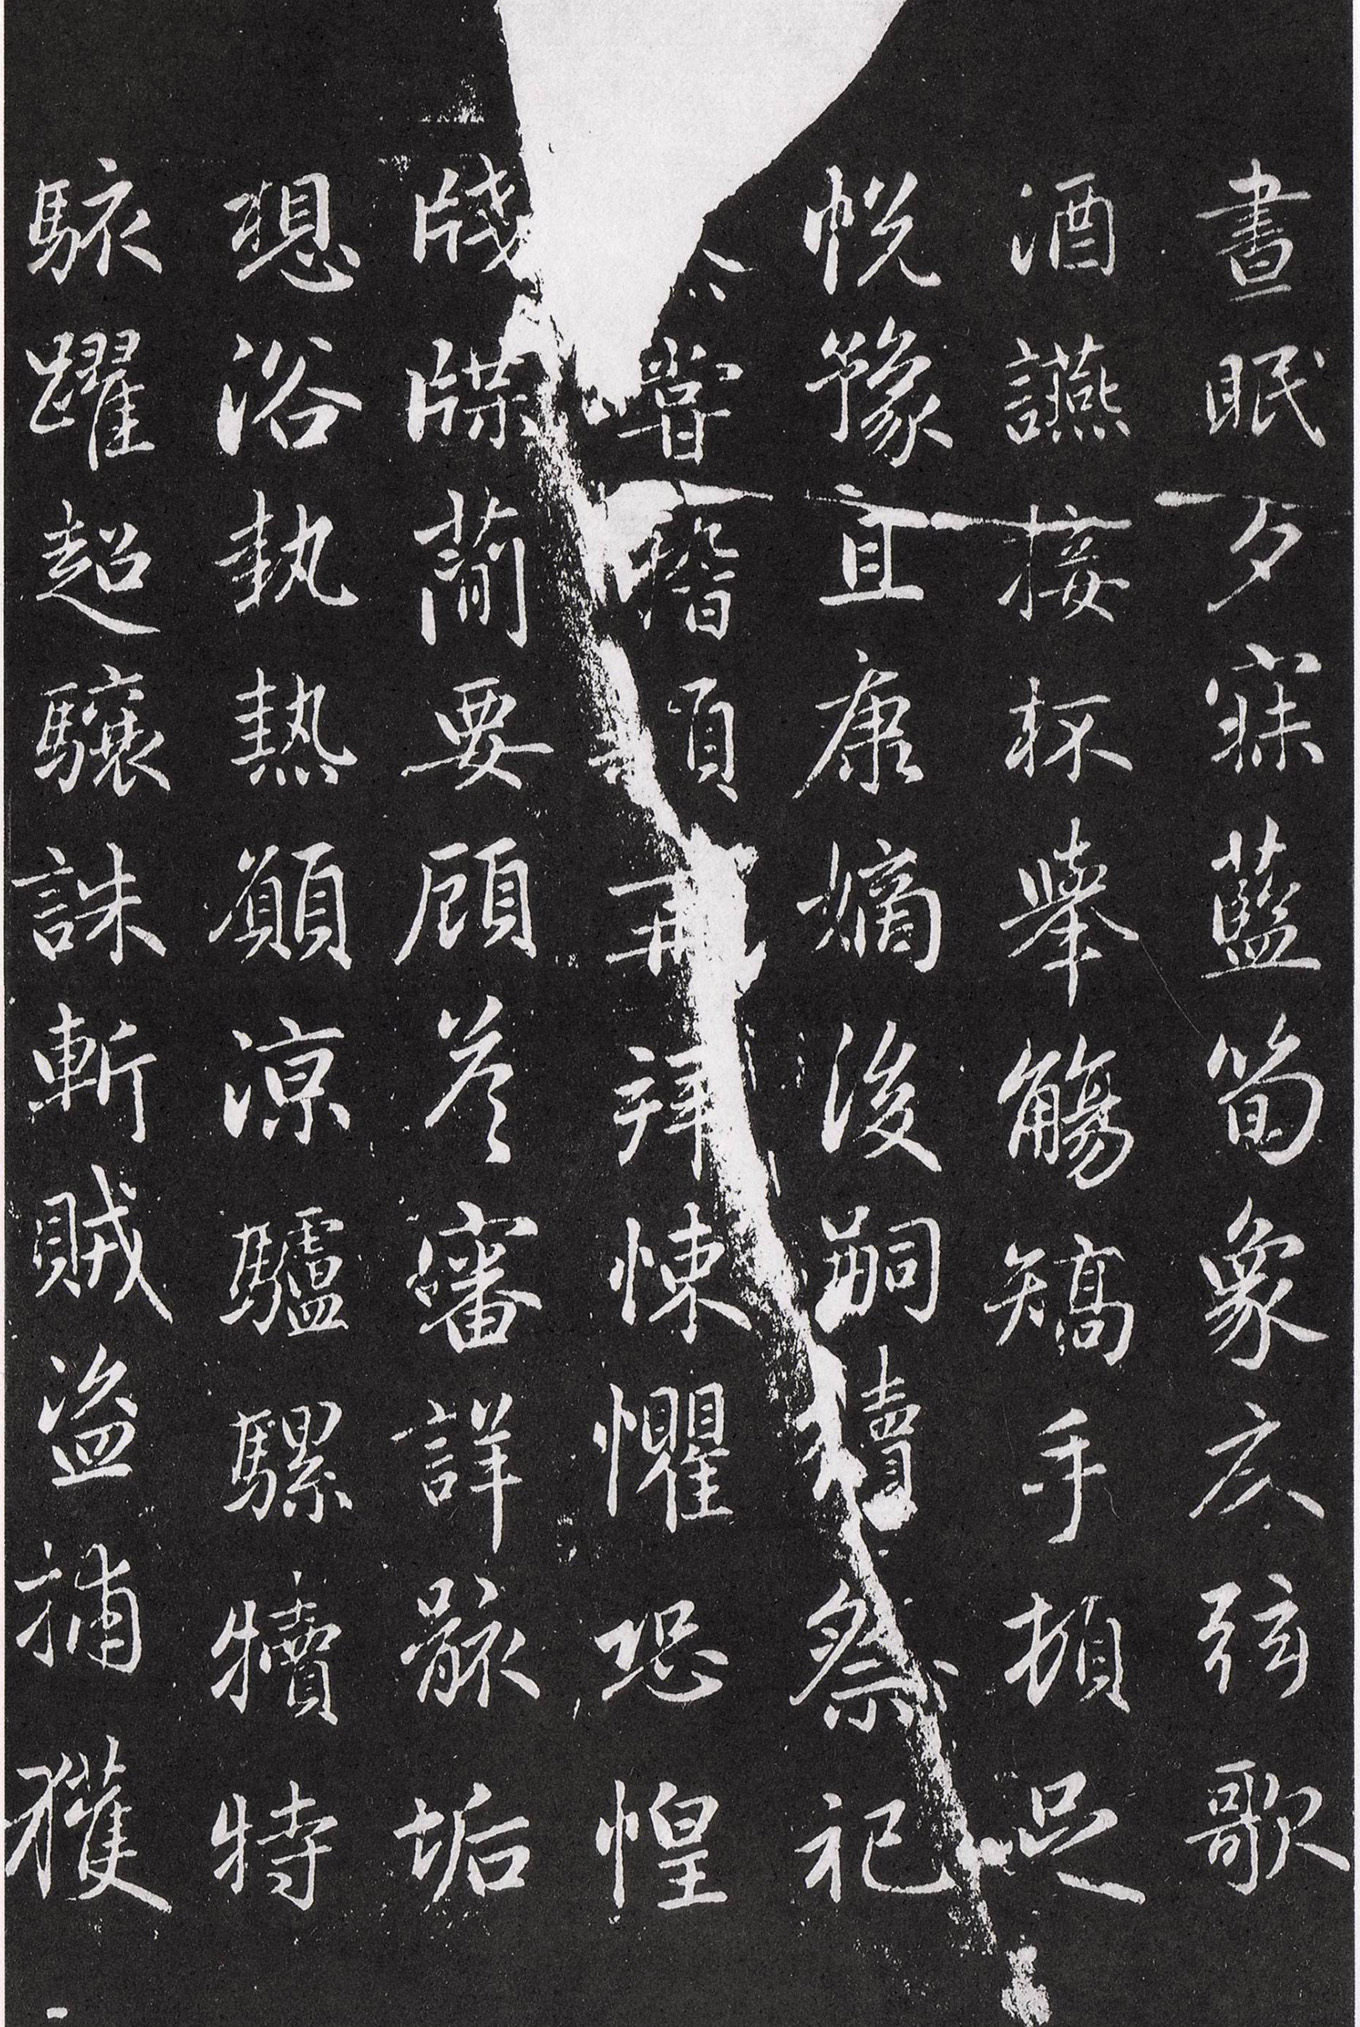 晝眠夕寐藍筍象床弦歌
酒讌接杯舉觴矯手頓足
悅豫且康嫡後嗣續祭祀
嘗稽顙再拜悚懼恐惶
牋牒簡要顧答審詳骸垢
想浴執熱願涼驢騾犢特
駭躍超驤誅斬賊盜捕獲